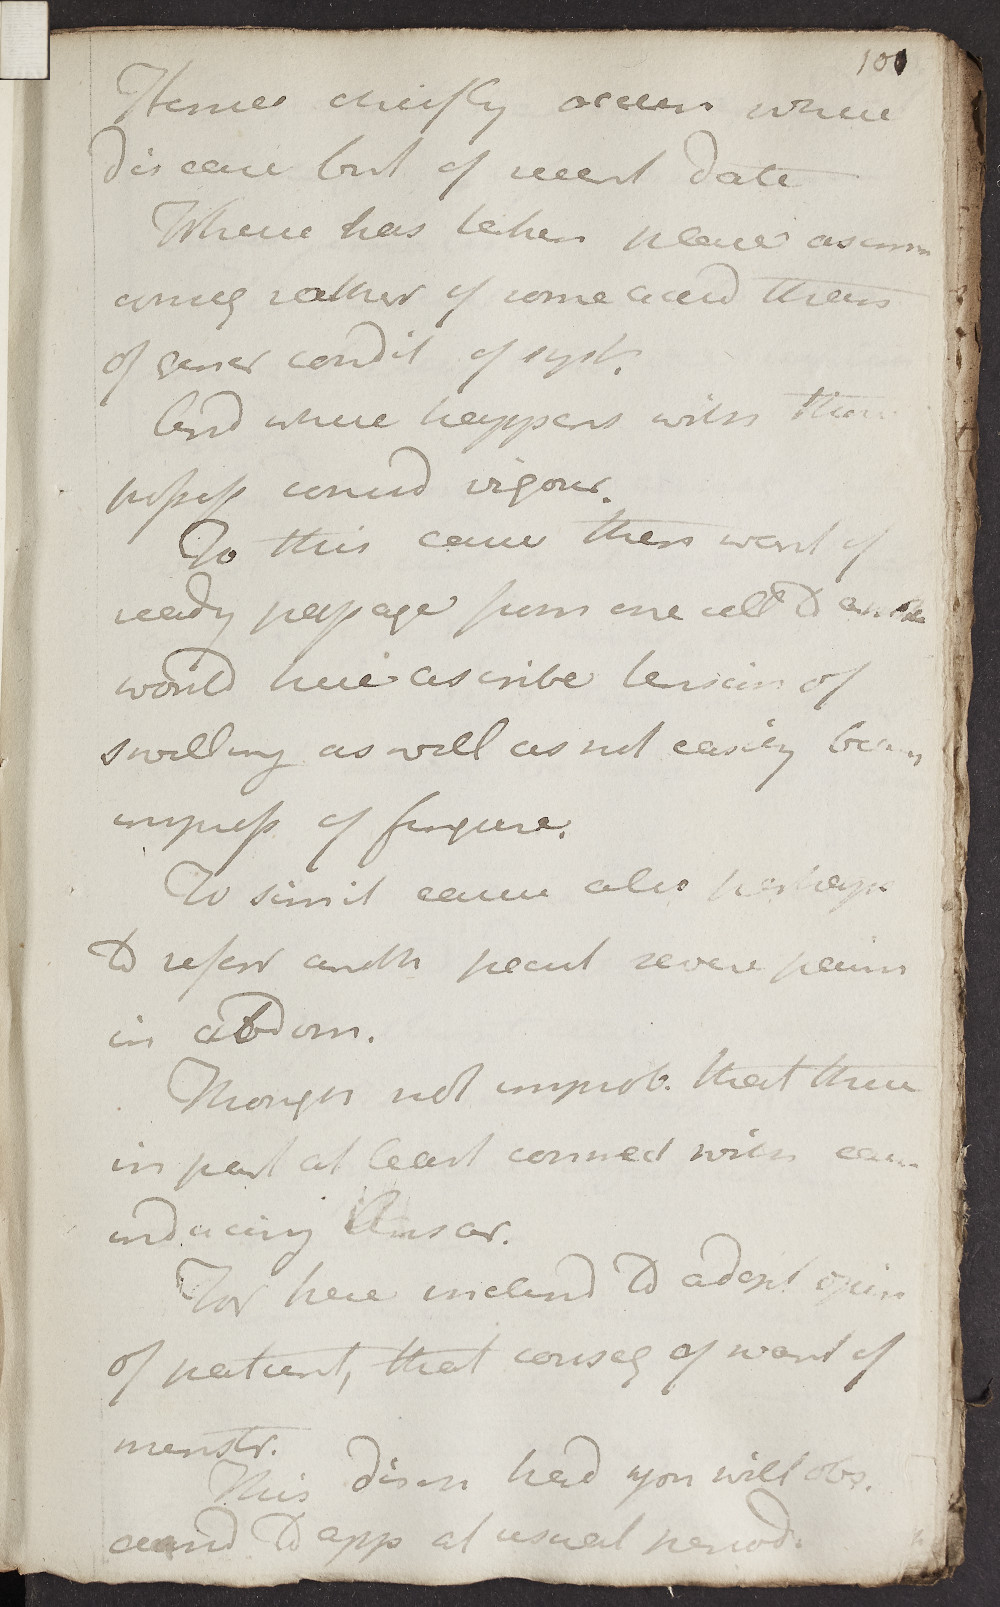 101
Hence chiefly occurs where
disease but of recent date
Where has taken place as
conseq rather of some accid than
of gener condit of syst.
And where happens with those
possess consid vigour.
To this cause then want of
ready passage from one cell to anothe
would here ascribe tension of
swelling as well as not easily
impress of fingure.
To simil cause also perhaps
to refer anoth pecul severe pain
in abdom.
Though not improb. that there
in part at least connect with caus
inducing Anasar.
For here inclind to adopt opin
of patient, that conseq of want of
menstr.
This disch had you will obs.
ceasd to app at usual period.